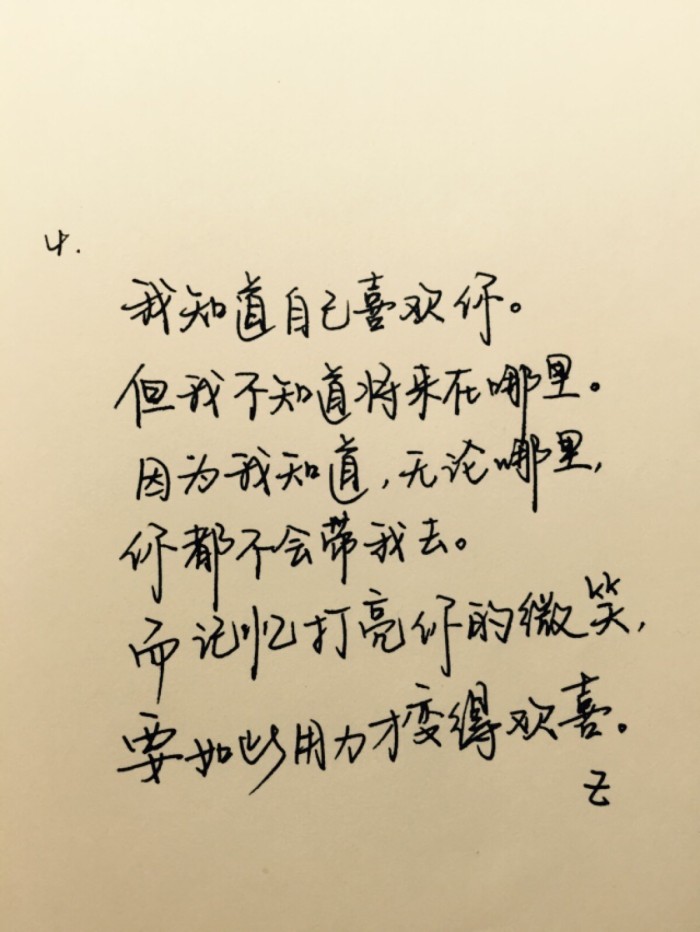 4.
我知道自己喜欢你。
但我不知道将来在哪里。
因为我知道,无论哪里,
你都不会带我去。
而记忆打亮你的微笑,
要如此用力才变得欢喜。
Z